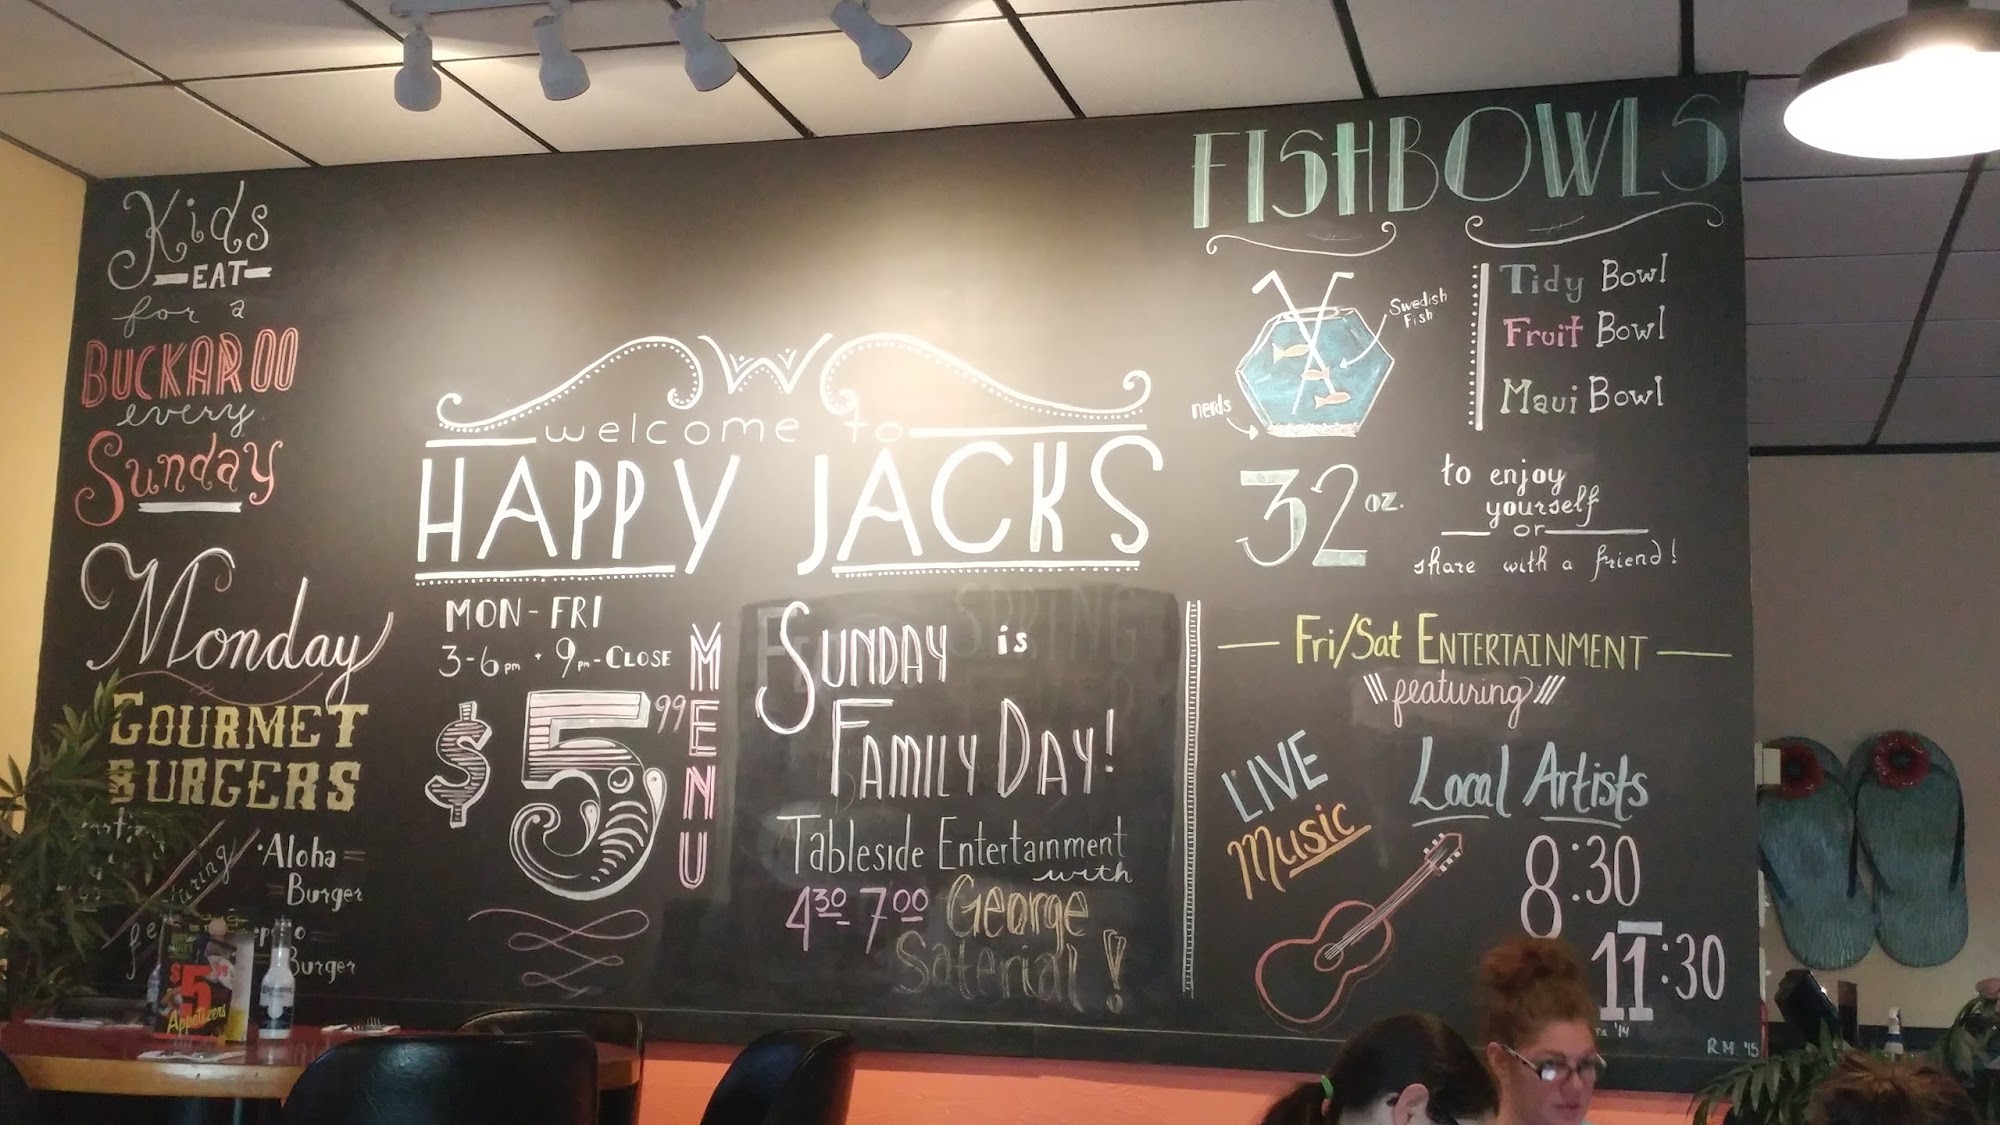 Kids
EAT
for a
BUCKAROO
every
Sunday
Monday
GOURMET
BURGERS
Aloha
Burger
Burger
W
welcome to
HAPPY JACKS
MON - FRI
3-6pm • 9pm-CLOSE
$5.99
MENU
SUNDAY is
FAMILY DAY!
Tableside Entertainment
with
4:30-7:00 George
Saterial!
SPRING
FISHBOWLS
Swedish
Fish
nerds
Tidy Bowl
Fruit Bowl
Maui Bowl
32 oz.
to enjoy
yourself
or
share with a friend!
Fri/Sat ENTERTAINMENT
featuring
LIVE
Music
Local Artists
8:30
11:30
'14
R.M. '15
$5.99
Appetizers